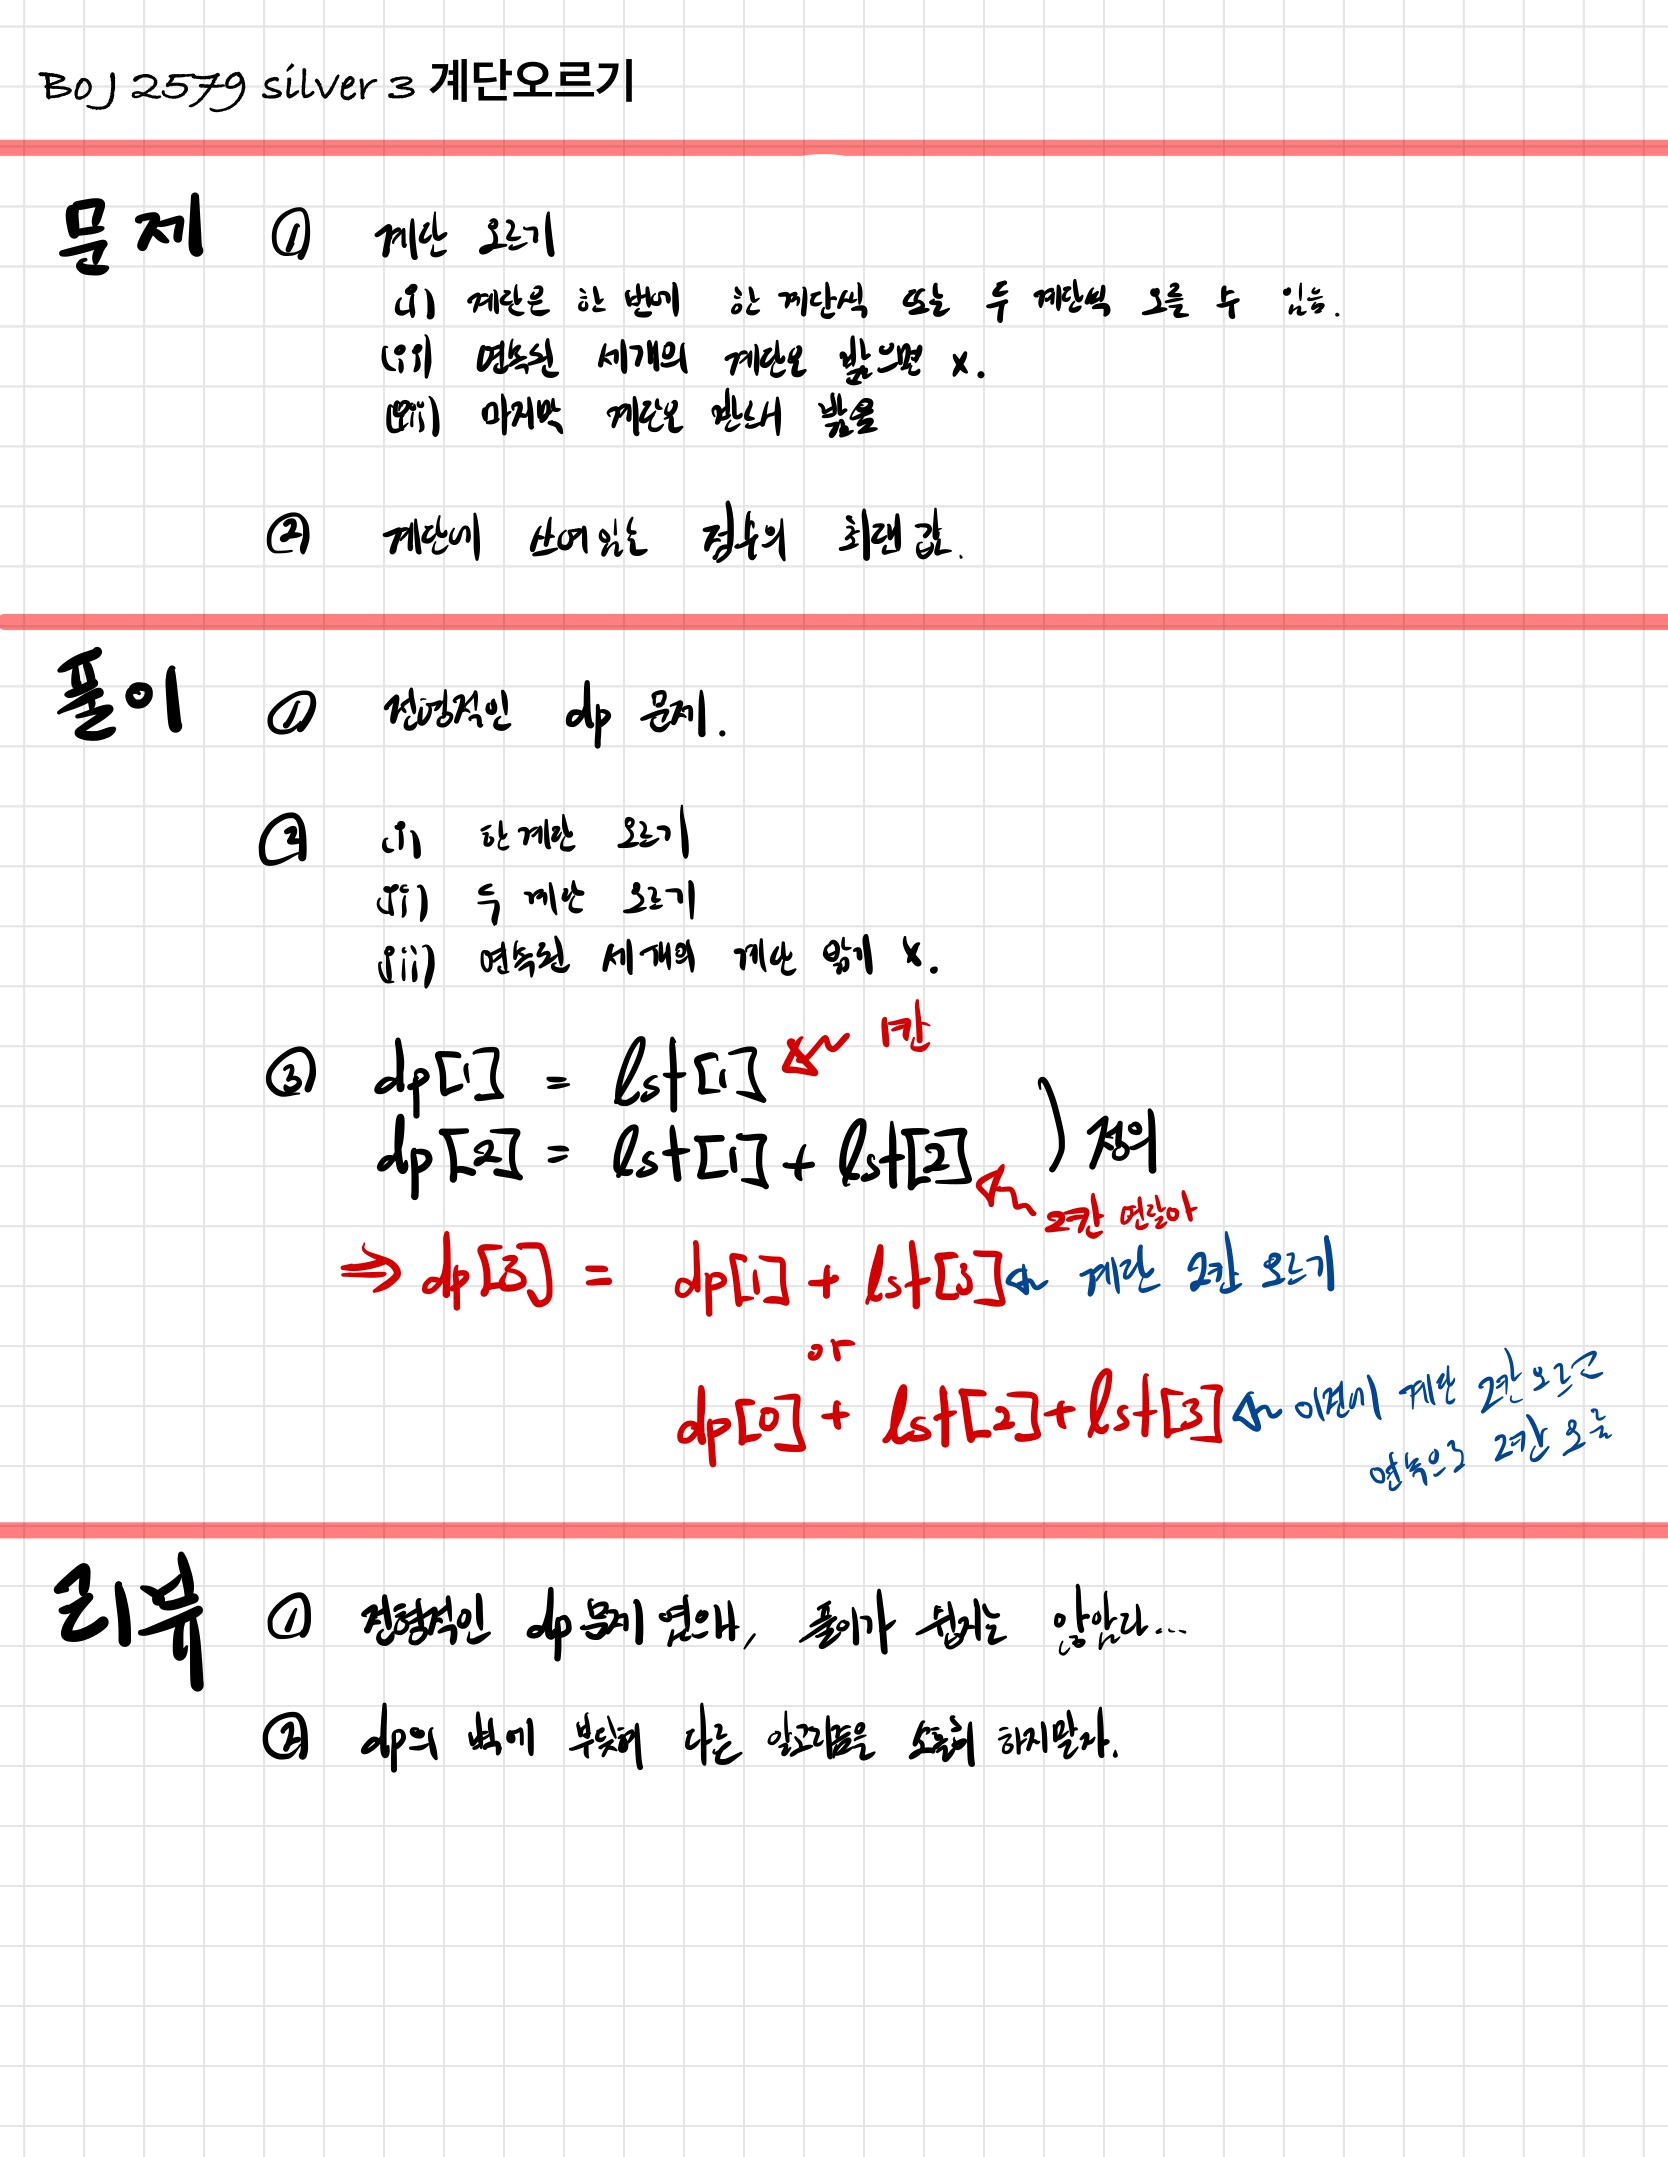 BOJ 2579 silver 3 계단오르기
문제 ① 계단 오르기
(i) 계단은 한 번에 한 계단씩 또는 두 계단씩 오를 수 있음.
(ii) 연속된 세개의 계단은 밟으면 x.
(iii) 마지막 계단은 반드시 밟음
② 계단에 쓰여있는 점수의 최댓값.
풀이 ① 전형적인 dp 문제.
② (i) 한계단 오르기
(ii) 두 계단 오르기
(iii) 연속된 세개의 계단 밟기 x.
③ dp[1] = lst[1] 1칸
dp[2] = lst[1] + lst[2] ) 정의
2칸 연달아
⇒ dp[3] = dp[1] + lst[3] 계단 2칸 오르기
or
dp[0] + lst[2] + lst[3] 이전에 계단 2칸 오르고
연속으로 2칸 오름
리뷰 ① 전형적인 dp 문제 였으나, 풀이가 쉽지는 않았다...
② dp의 벽에 부딪혀 다른 알고리즘을 소홀히 하지말자.